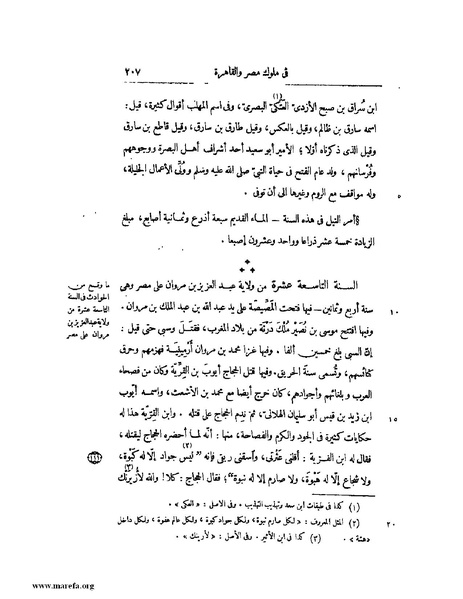 فى ملوك مصر والقاهرة ٢٠٧
ابن سُراق بن صبح الأزدىّ العَتَكىّ (١) البصرىّ، وفى اسم المهلب أقوال كثيرة، قيل:
اسمه سارق بن ظالم، وقيل بالعكس، وقيل طارق بن سارق، وقيل قاطع بن سارق
وقيل الذى ذكرناه أوّلا؛ الأمير أبو سعيد أحد أشراف أهل البصرة ووجوههم
وفُرسانهم، ولد عام الفتح فى حياة النبىّ صلى الله عليه وسلم ووَلِىَ الأعمال الجليلة،
وله مواقف مع الروم وغيرها الى أن توفى. ٥
§أمر النيل فى هذه السنة – المـاء القديم سبعة أذرع وثمـانية أصابع، مبلغ
الزيادة خمسة عشر ذراعا وواحد وعشرون إصبعا.
السنة التاسعة عشرة من ولاية عبد العزيز بن مروان على مصر وهى
سنة أربع وثمانين – فيها فتحت المَصِّيصة على يد عبد الله بن عبد الملك بن مروان. ١٠
وفيها افتتح موسى بن نُصَيْر مُلْك دَرْنَة من بلاد المغرب، فقتَل وسبى حتى قيل:
إنّ السبى بلغ خمسين ألفا. وفيها غزا محمد بن مروان أَرْمِينِيَة فهزمهم وحرق
كنائسهم، وتُسمى سنة الحريق. وفيها قتل الحجاج أيوب بن القِرِّيَّة وكان من فصحاء
العرب وبلغائهم وأجوادهم، كان خرج أيضا مع محمد بن الأشعث، واسمـه أيوب
ابن زيد بن قيس أبو سليمان الهلالىّ، ثم ندِم الحجاج على قتله. وابن القِرِّيَّة هذا له ١٥
حكايات كثيرة فى الجود والكرم والفصاحة، منها: أنّه لمـا أحضره الحجاج ليقتله،
فقال له ابن القرية: أقلنى عَثْرتى، وأسقنى ريقى فإنه "ليس جواد إلا له كَبْوة،
ولا شجاع إلّا له هَبْوة، ولا صارم إلا له نبوة (٢)"؛ فقال الحجاج: كلا! والله لأُزيرنّك (٣)
ما وقع من
الحوادث فى السنة
التاسعة عشرة من
ولاية عبد العزيز بن
مروان على مصر
(١) كذا فى طبقات ابن سعد وتهذيب التهذيب. وفى الأصل: «العكى».
(٢) المثل المعروف: «لكل صارم نبوة، ولكل جواد كبوة، ولكل عالم هفوة، ولكل داخل ٢٠
دهشة». (٣) كذا فى ابن الأثير. وفى الأصل: «لأرينك».
www.marefa.org